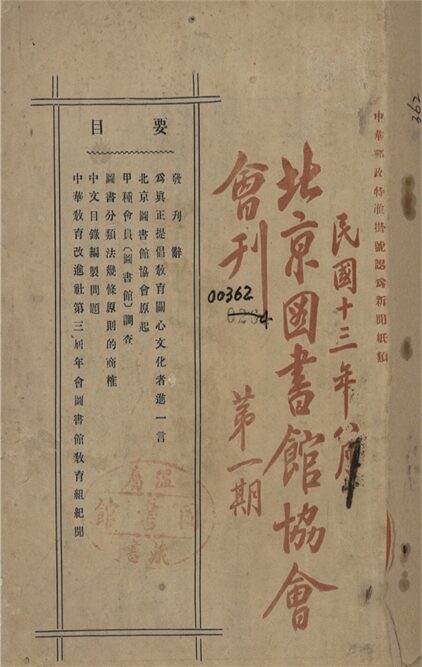 362
中華郵政特准掛號認為新聞紙類
民國十三年八月
北京圖書館協會
會刊
第一期
00362
要目
發刊辭
為真正提倡敎育關心文化者進一言
北京圖書館協會原起
甲種會員(圖書館)調查
圖書分類法幾條原則的商榷
中文目錄編製問題
中華敎育改進社第三屆年會圖書館敎育組紀聞
圖書館